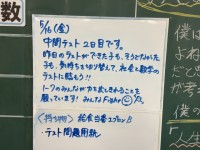 数
5/16(金)
中間テスト2日目です。
昨日のテストができた子も、そうでなかった
子も、気持ちを切り替えて、社会と数学の
テストに臨もう!!
1-7のみんなが力を出しきれることを
願っています! みんなFight
<持ち物> 給食当番エプロン
・テスト問題用紙
僕は
「人生